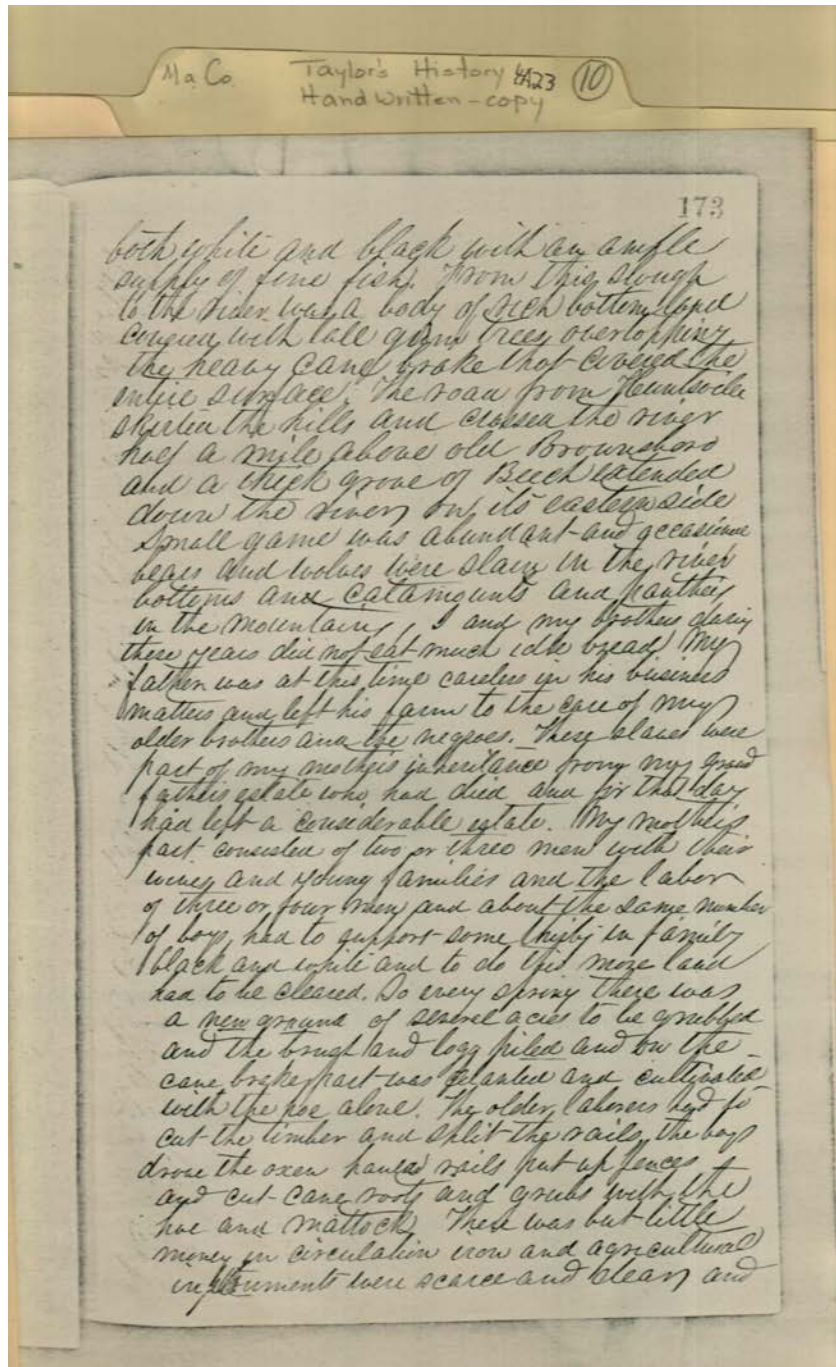 Ma Co. Taylor's History 4A23 10
Hand written - copy
173
both white and black with an ample
supply of fine fish. From this slough
to the river was a body of rich bottom land
covered with tall gum trees overtopping
the heavy cane brake that covered the
entire surface. The road from Huntsville
skirted the hills and crossed the river
half a mile above old Brownsboro
and a thick grove of Beech extended
down the river on its eastern side
Small game was abundant and occasional
bears and wolves were slain in the river
bottoms and catamounts and panthers
in the mountains, I and my brothers during
these years did not eat much idle bread. My
father was at this time careless in his business
matters and left his farm to the care of my
older brothers and the negroes. These slaves were
part of my mothers inheritance from my grand
fathers estate who had died and for that day
had left a considerable estate. My mothers
part consisted of two or three men with their
wives and young families and the labor
of three or four men and about the same number
of boys had to support some in family
black and white and to do this more land
had to be cleared. So every spring there was
a new ground of several acres to be grubbed
and the brush and logs piled and on the
cane brake part was planted and cultivated
with the hoe alone. The older laborers had to
cut the timber and split the rails, the boys
drove the oxen hauled rails put up fences
and cut cane roots and grubs with the
hoe and mattock. There was but little
money in circulation iron and agricultural
instruments were scarce and dear, and